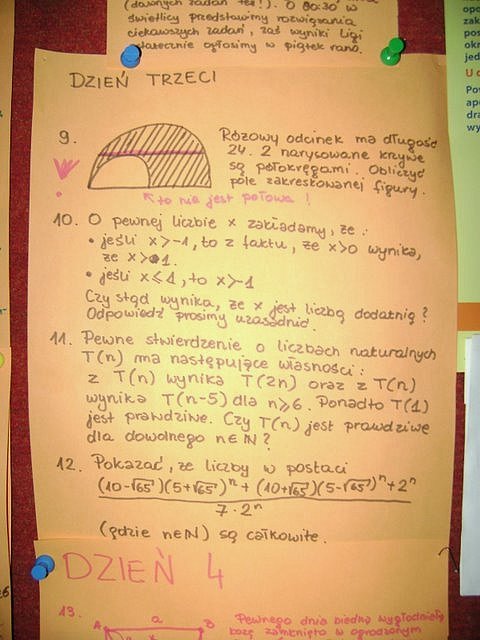 (dawnych zadań też!). O 00:30 w
świetlicy przedstawimy rozwiązania
ciekawszych zadań, zaś wyniki Ligi
ostatecznie ogłosimy w piątek rano.
DZIEŃ TRZECI
9.
Różowy odcinek ma długość
24. 2 narysowane krzywe
są półokręgami. Obliczyć
pole zakreskowanej figury.
to nie jest połowa!
10. O pewnej liczbie x zakładamy, że:
• jeśli x>-1, to z faktu, że x>0 wynika,
że x>1.
• jeśli x≤1, to x>-1
Czy stąd wynika, że x jest liczbą dodatnią?
Odpowiedź prosimy uzasadnić.
11. Pewne stwierdzenie o liczbach naturalnych
T(n) ma następujące własności:
z T(n) wynika T(2n) oraz z T(n)
wynika T(n-5) dla n≥6. Ponadto T(1)
jest prawdziwe. Czy T(n) jest prawdziwe
dla dowolnego n∈N?
12. Pokazać, że liczby w postaci
(10-√65)(5+√65)ⁿ + (10+√65)(5-√65)ⁿ + 2ⁿ
7·2ⁿ
(gdzie n∈N) są całkowite.
DZIEŃ 4
13.
A a B
Pewnego dnia biedną wygłodniałą
kozę zamknięto w ogrodzonym